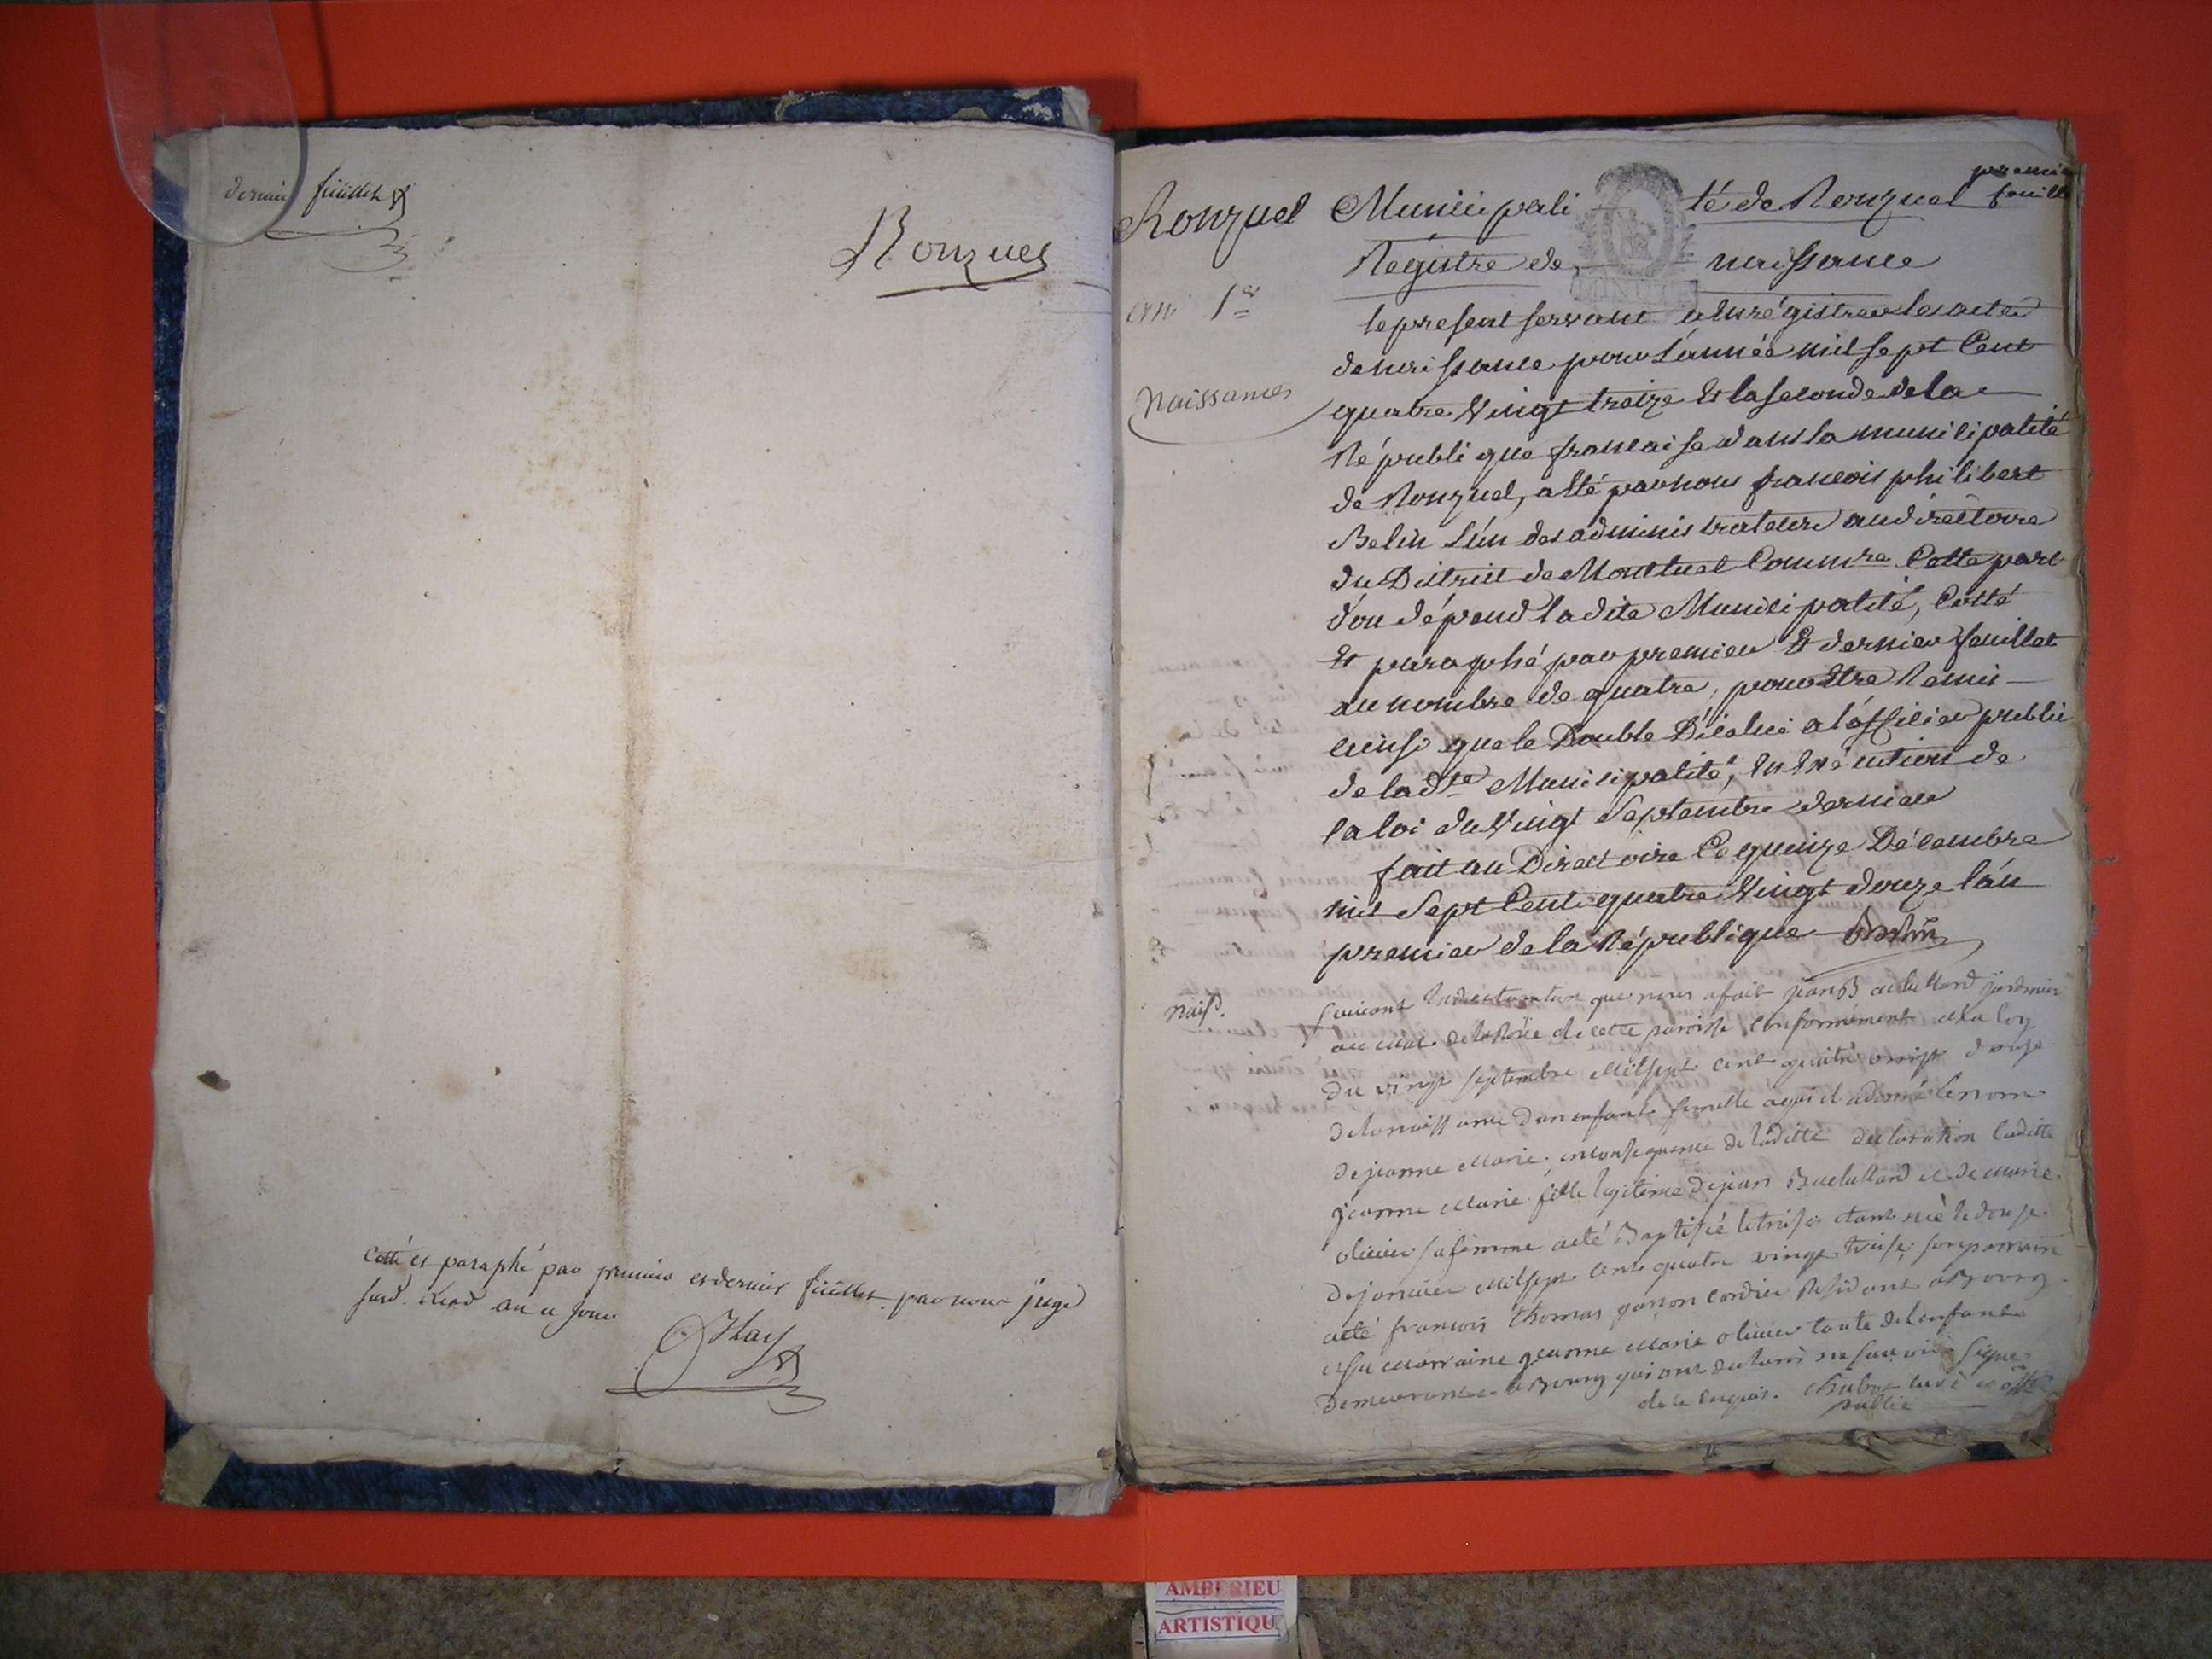 dernier feüillet
Ronzuel
Cotté et paraphé par premier et dernier feüillet par nous juge
susd. an et jour
premier
feuille
Ronzuel Municipali té de Ronzuel
Régistre de naissance
an 1er
le present servant a Enrégistrer les actes
de naissance pour L'année mil sept Cent
Naissances
quatre Vingt treize Et la seconde de la
République francaise dans la municipalité
de Ronzuel, a Eté par nous francois philibert
Belin L'un des administrateurs au directoire
du District de Montluel Commre Cette part
d'ou dépend ladite Municipalité, Cotté
Et paraphé par premier Et dernier feuillet
au nombre de quatre, pour Etre Remis
ainsi que le Double D'icelui a l'officier public
de la dte Municipalité, En Exécution de
la loi du Vingt Septembre dernier
fait au Directoire Ce quinze Décembre
mil Sept Cent quatre Vingt douze l'an
premier de la République Belin
naiss.
suivant la declaration que nous a fait jean Bachallard jardinier
au mas de la Roüe de cette paroisse conformement a la loy
du vingt septembre Milsept cent quatre vingt douze
de la naissance d'un enfant femelle a qui il a donné le nom
de jeanne Marie, en consequence de laditte declaration laditte
jeanne Marie fille legitime de jean Bachallard et de Marie
olivier sa femme a eté Baptisée le treise etant née le douze
de janvier Milsept cent quatre vingt treise; son parrain
a eté francois thomas garçon cordier Residant a Bourg
et sa Marraine jeanne Marie olivier tante de l'enfant
demeurante a Bourg qui ont declaré ne savoir signer
de ce enquis. curé et offr
public
MINUTE
AMBERIEU
ARTISTIQU